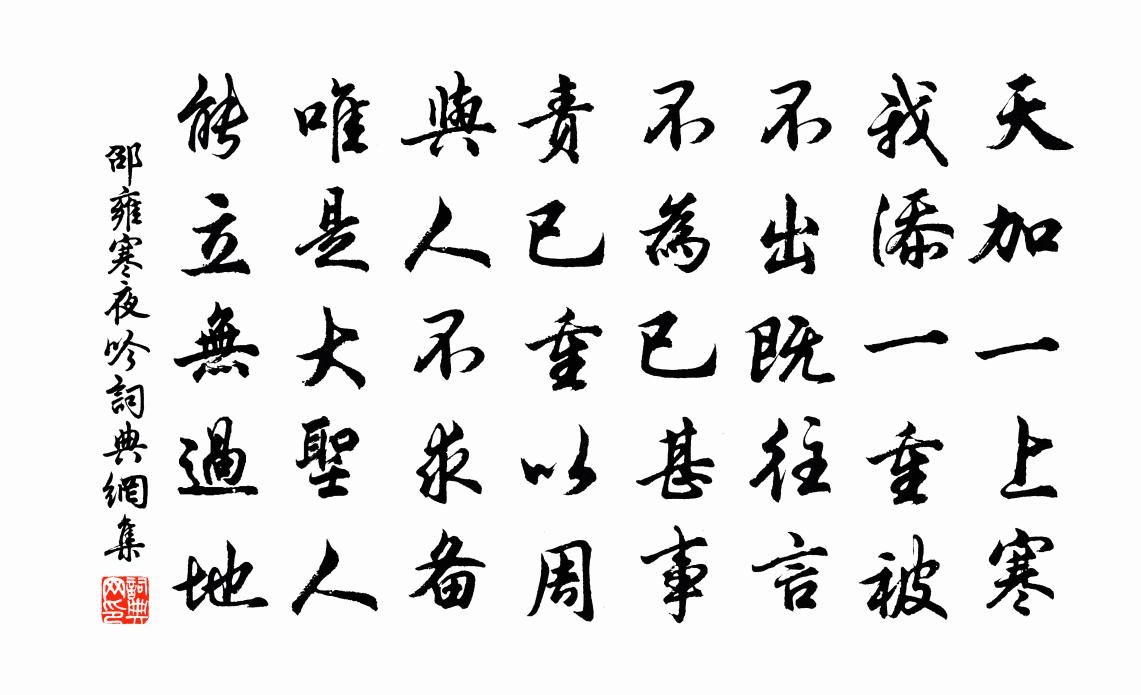 天加一上寒
我添一重被
不出既往言
不為已甚事
責已重以周
與人不求备
唯是大聖人
能立無過地
邵雍寒夜吟詞典網集
詞典网印